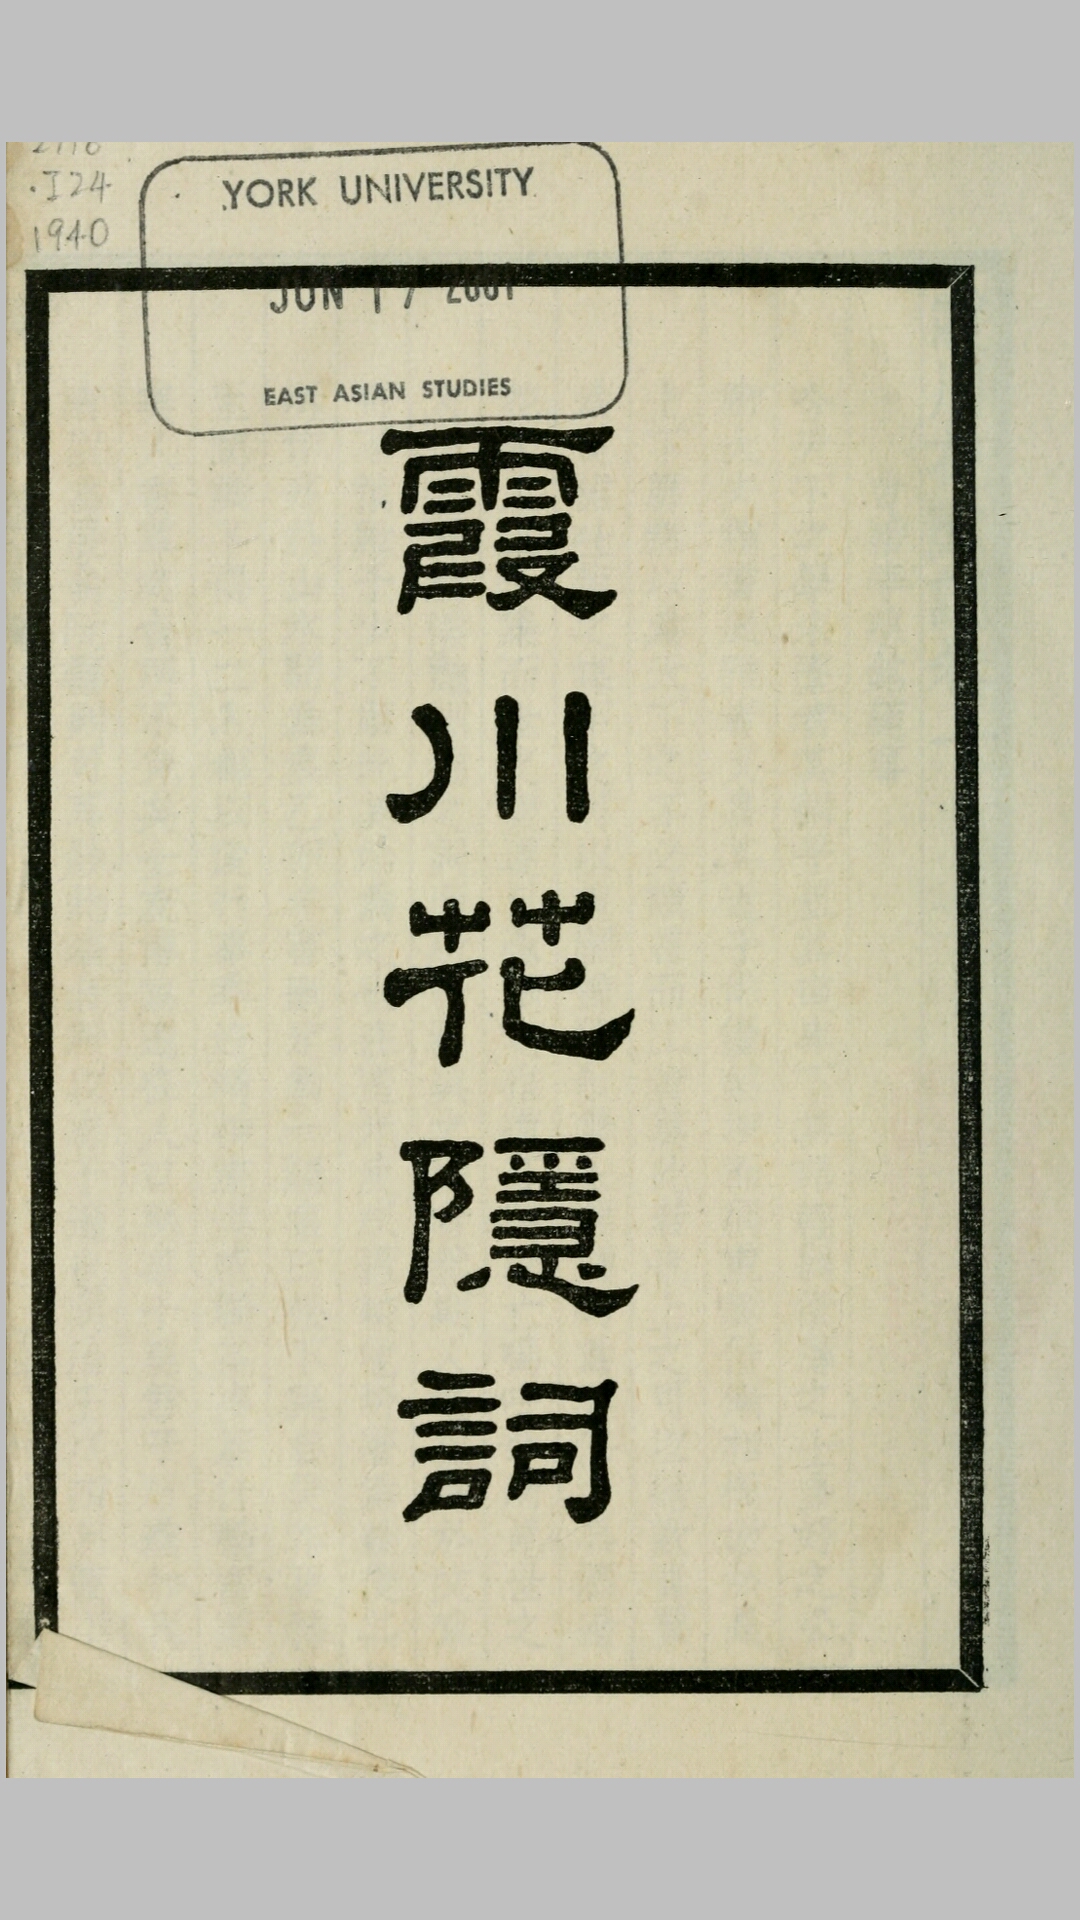 .I24
1940
YORK UNIVERSITY
JUN 17 2001
EAST ASIAN STUDIES
霞川花隱詞